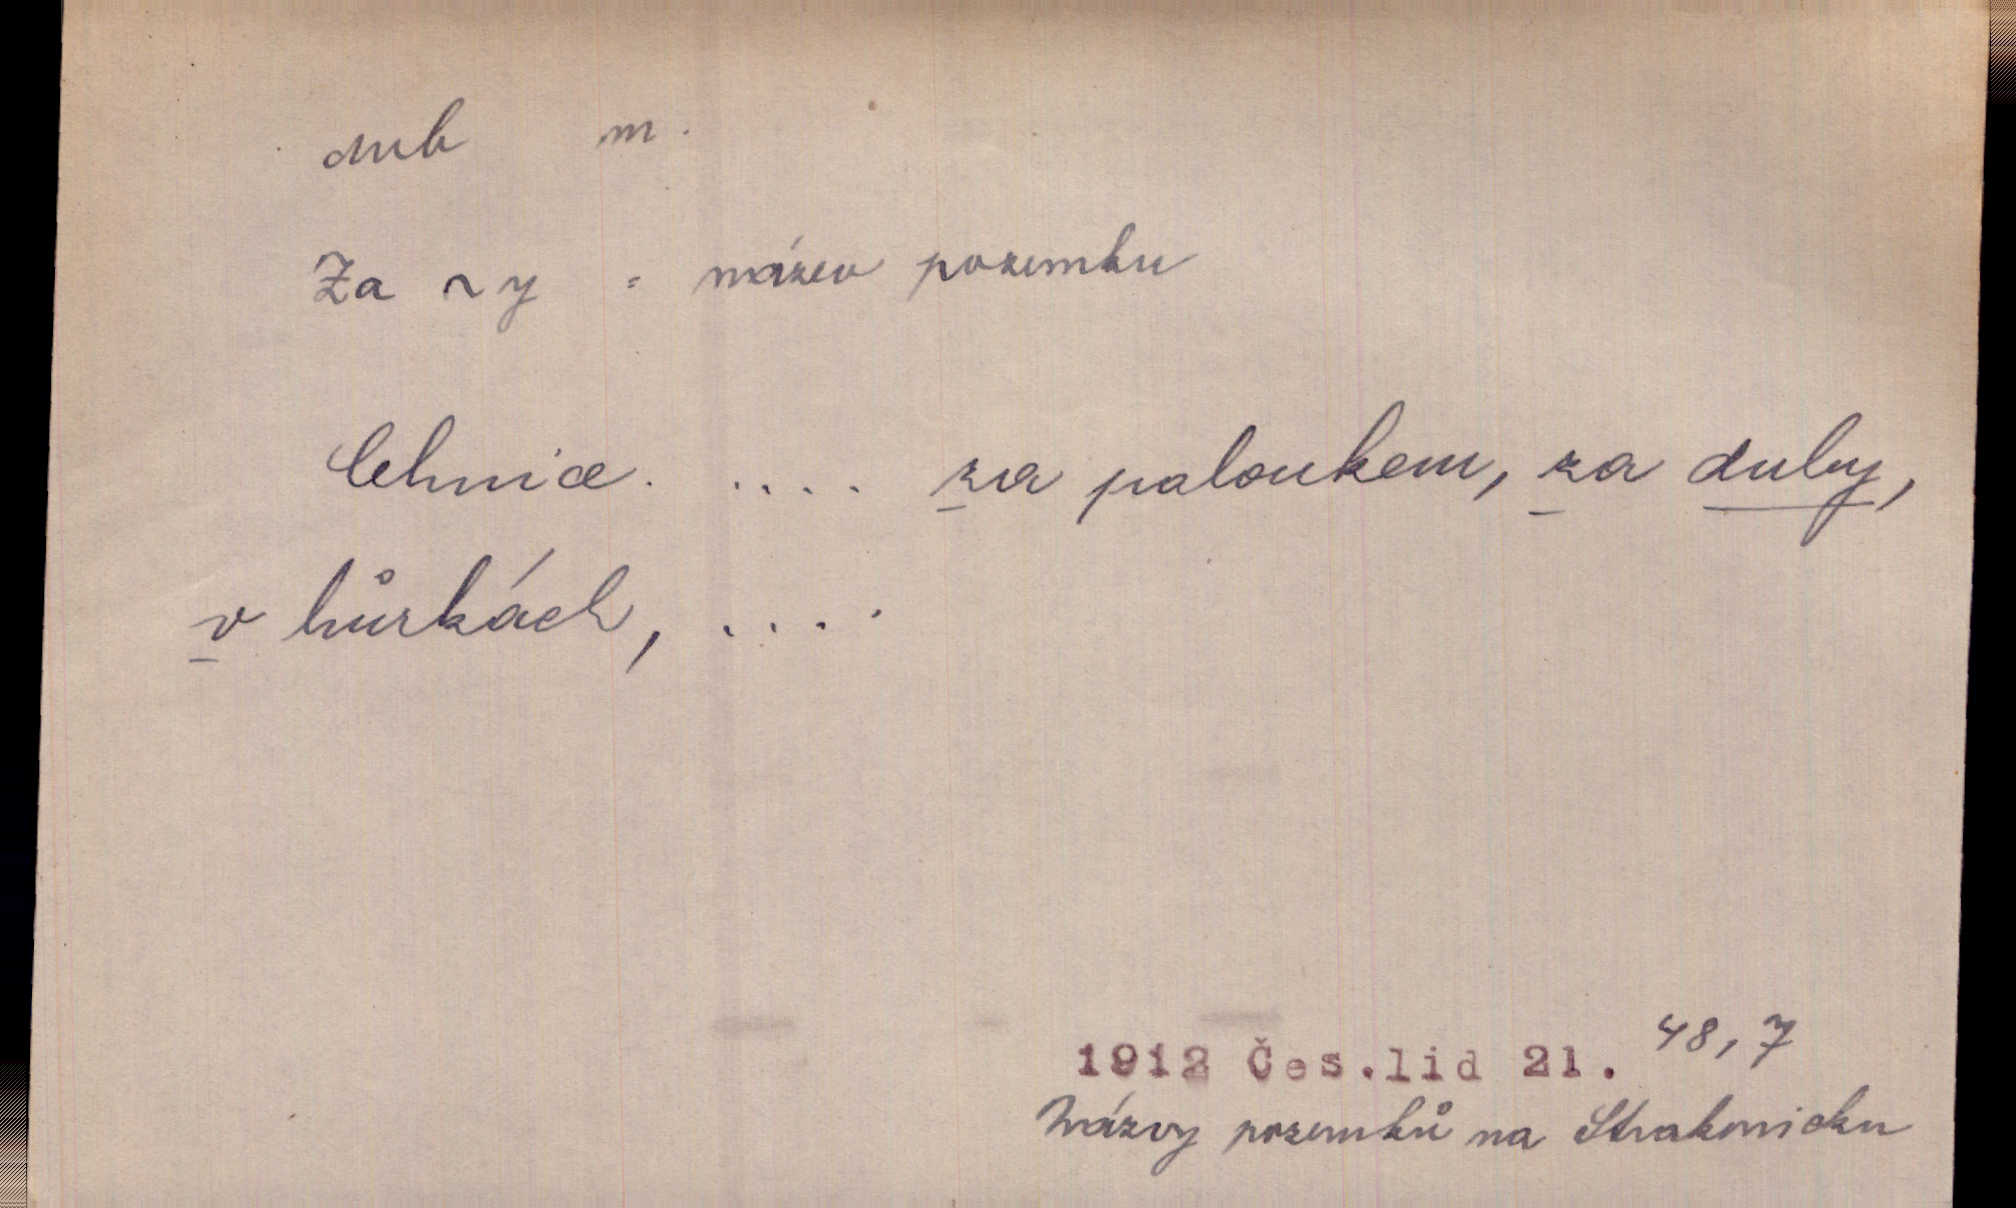 dub m.
Za ~y = název pozemku
Cehnice. .... za paloukem, za duby,
v hůrkách, ....
1912 Čes.lid 21. 48,7
Názvy pozemků na Strakonicku